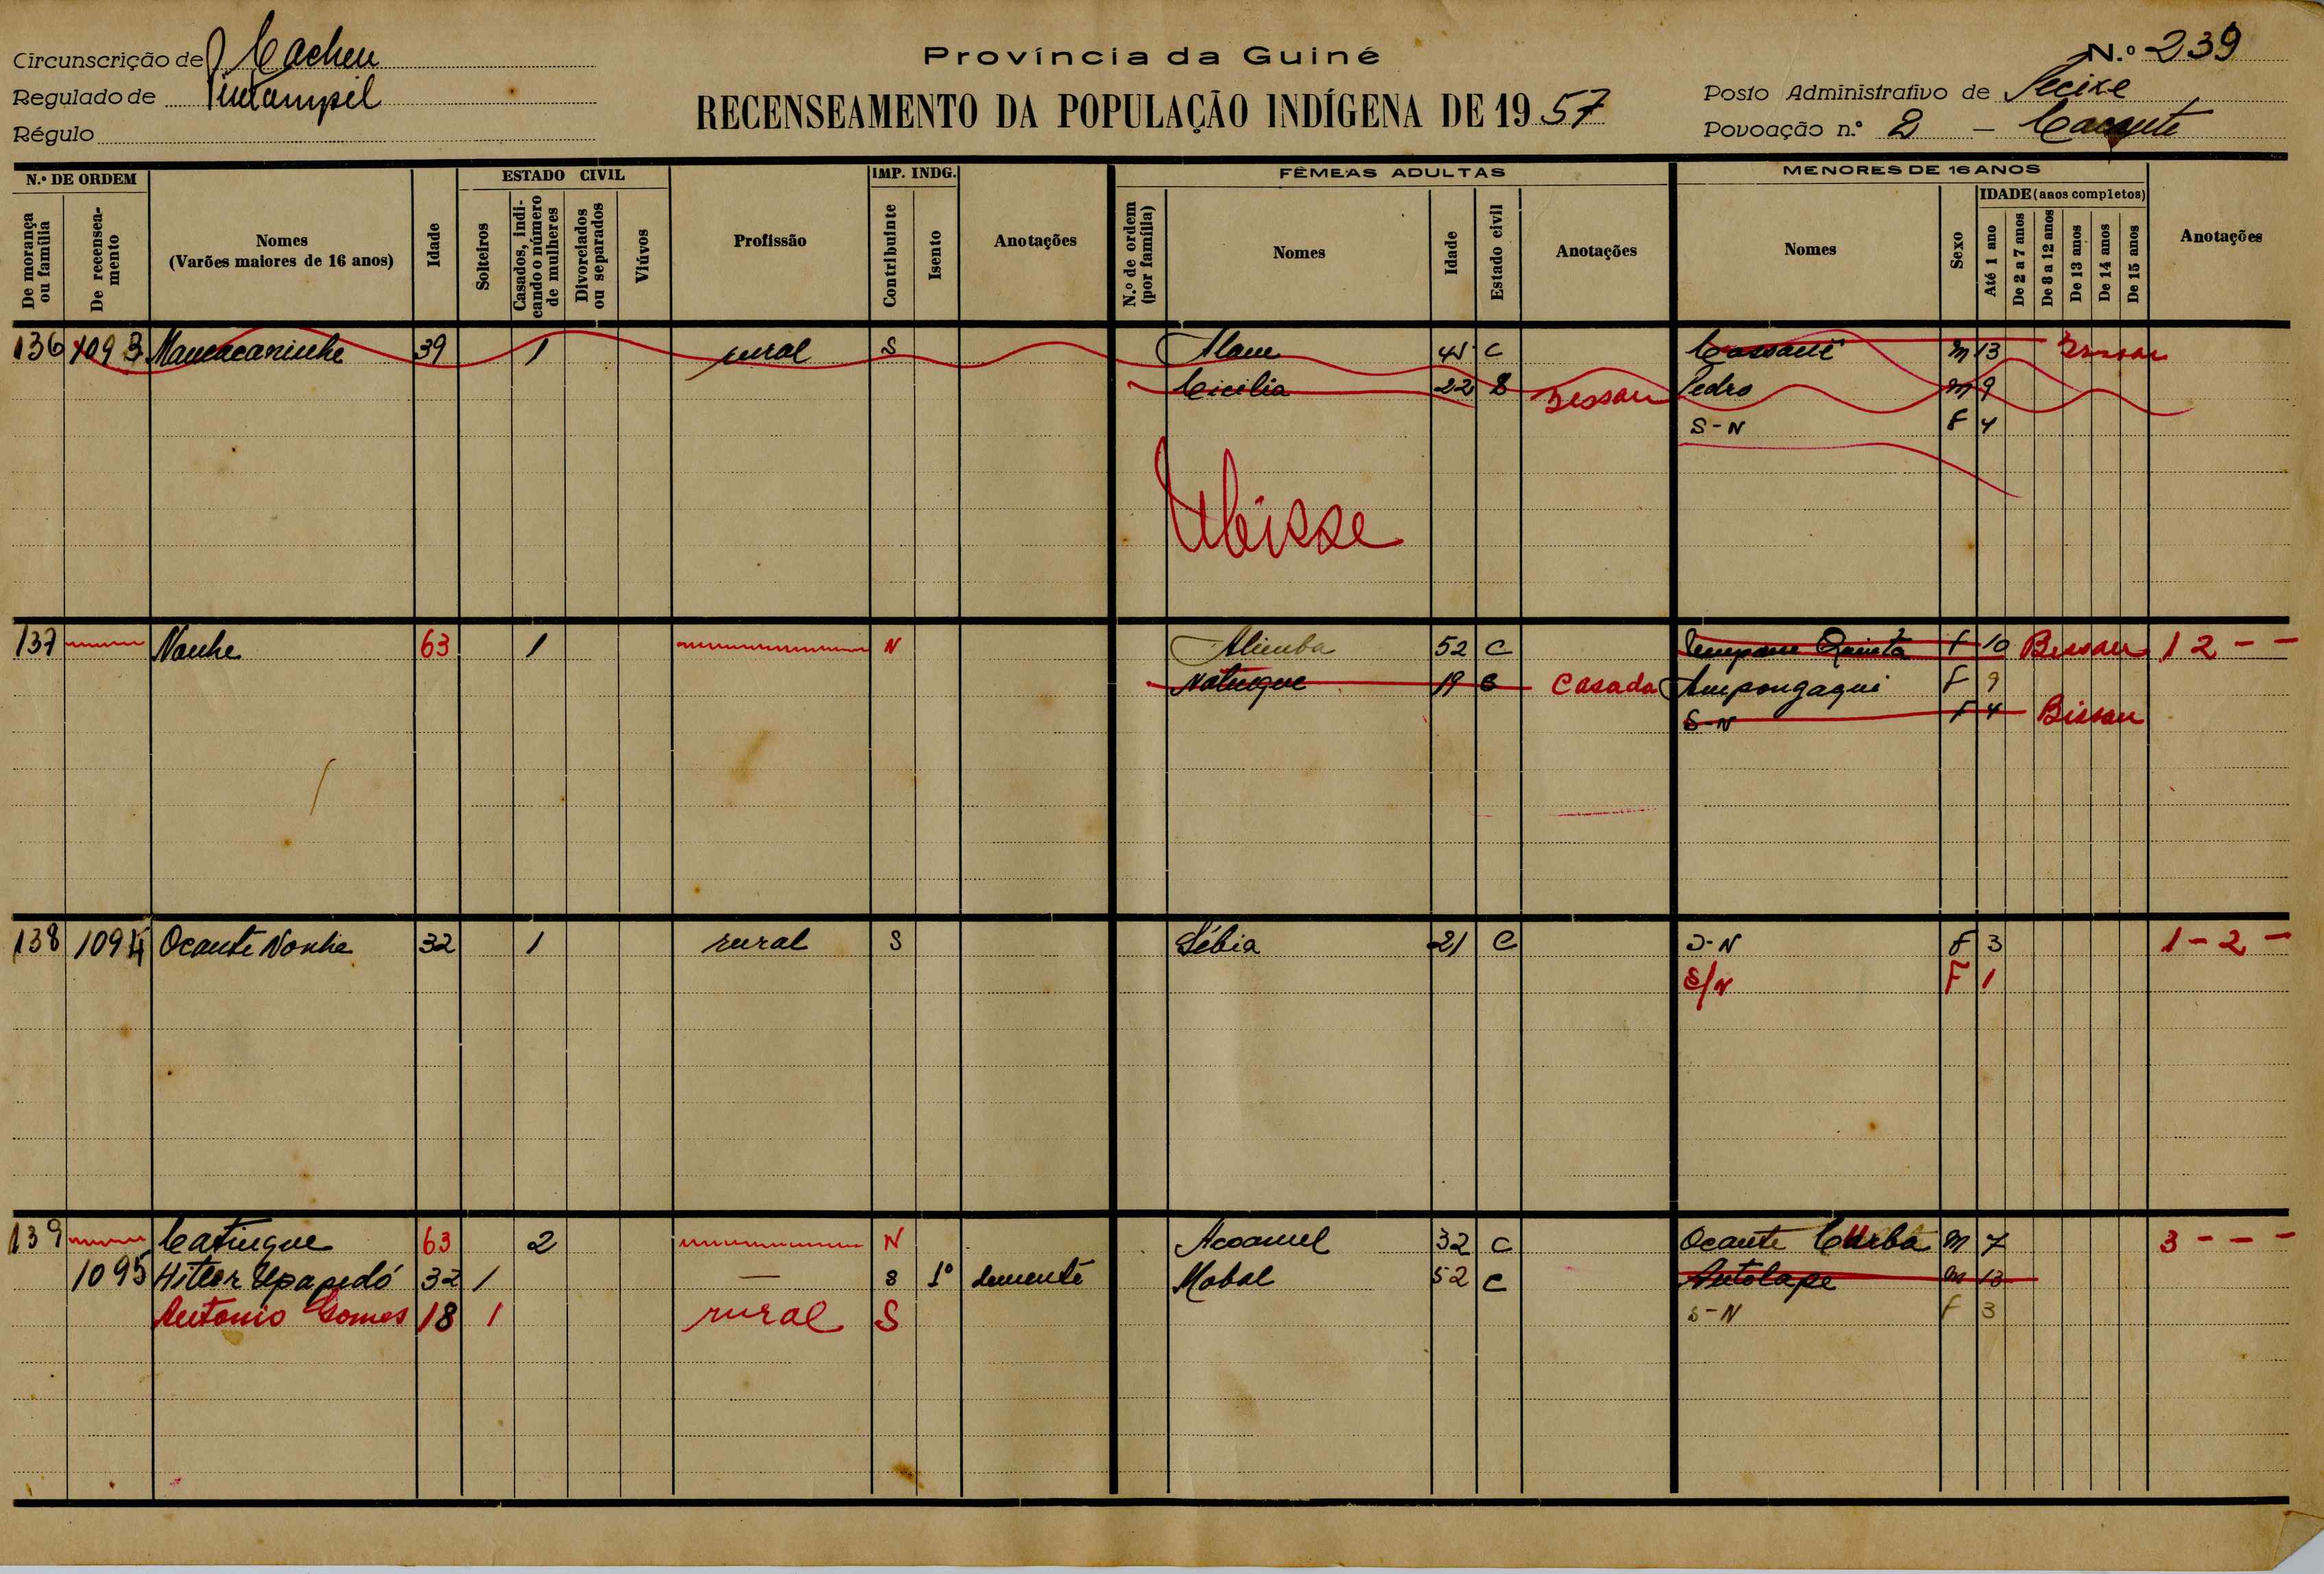 Circunscrição de Cacheu
Província da Guiné
N.º 239
Regulado de
Posto Administrativo de Pecixe
RECENSEAMENTO DA POPULAÇÃO INDÍGENA DE 1957
Régulo
Povoação n.º 2 –
N.º DE ORDEM
De morança ou família
De recenseamento
Nomes
(Varões maiores de 16 anos)
Idade
ESTADO CIVIL
Solteiros
Casados, indicando o número de mulheres
Divorciados ou separados
Viúvos
Profissão
IMP. INDG.
Contribuinte
Isento
Anotações
FÊMEAS ADULTAS
N.º de ordem (por família)
Nomes
Idade
Estado civil
Anotações
MENORES DE 16 ANOS
Nomes
Sexo
IDADE (anos completos)
Até 1 ano
De 2 a 7 anos
De 8 a 12 anos
De 13 anos
De 14 anos
De 15 anos
Anotações
136 1093 Mancacarinhe 39 1 rural S Alam C M 13 Bissau
Cicilia 22 S Bissau Pedro M 9
S-N F 4
137 Nonhe 63 1 N Alimba 52 C Quinta F 10 Bissau 1 2 - -
Natingue 19 S Casada Ampongaqui F 9
S-N F 4 Bissau
138 1094 Ocante Nonhe 32 1 rural S Sébia 21 C S-N F 3 1 - 2 -
S/N F 1
139 Catingue 63 2 N Acoamel 32 C Ocante M 7 3 - - -
1095 Hitler Upapedó 32 1 — S 1º demente Mobal 52 C Antolape M 13
Antonio Gomes 18 1 rural S S-N F 3